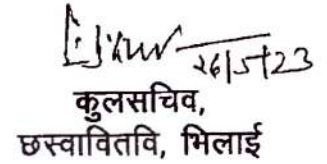 26/5/23
कुलसचिव,
छस्वावितवि, भिलाई